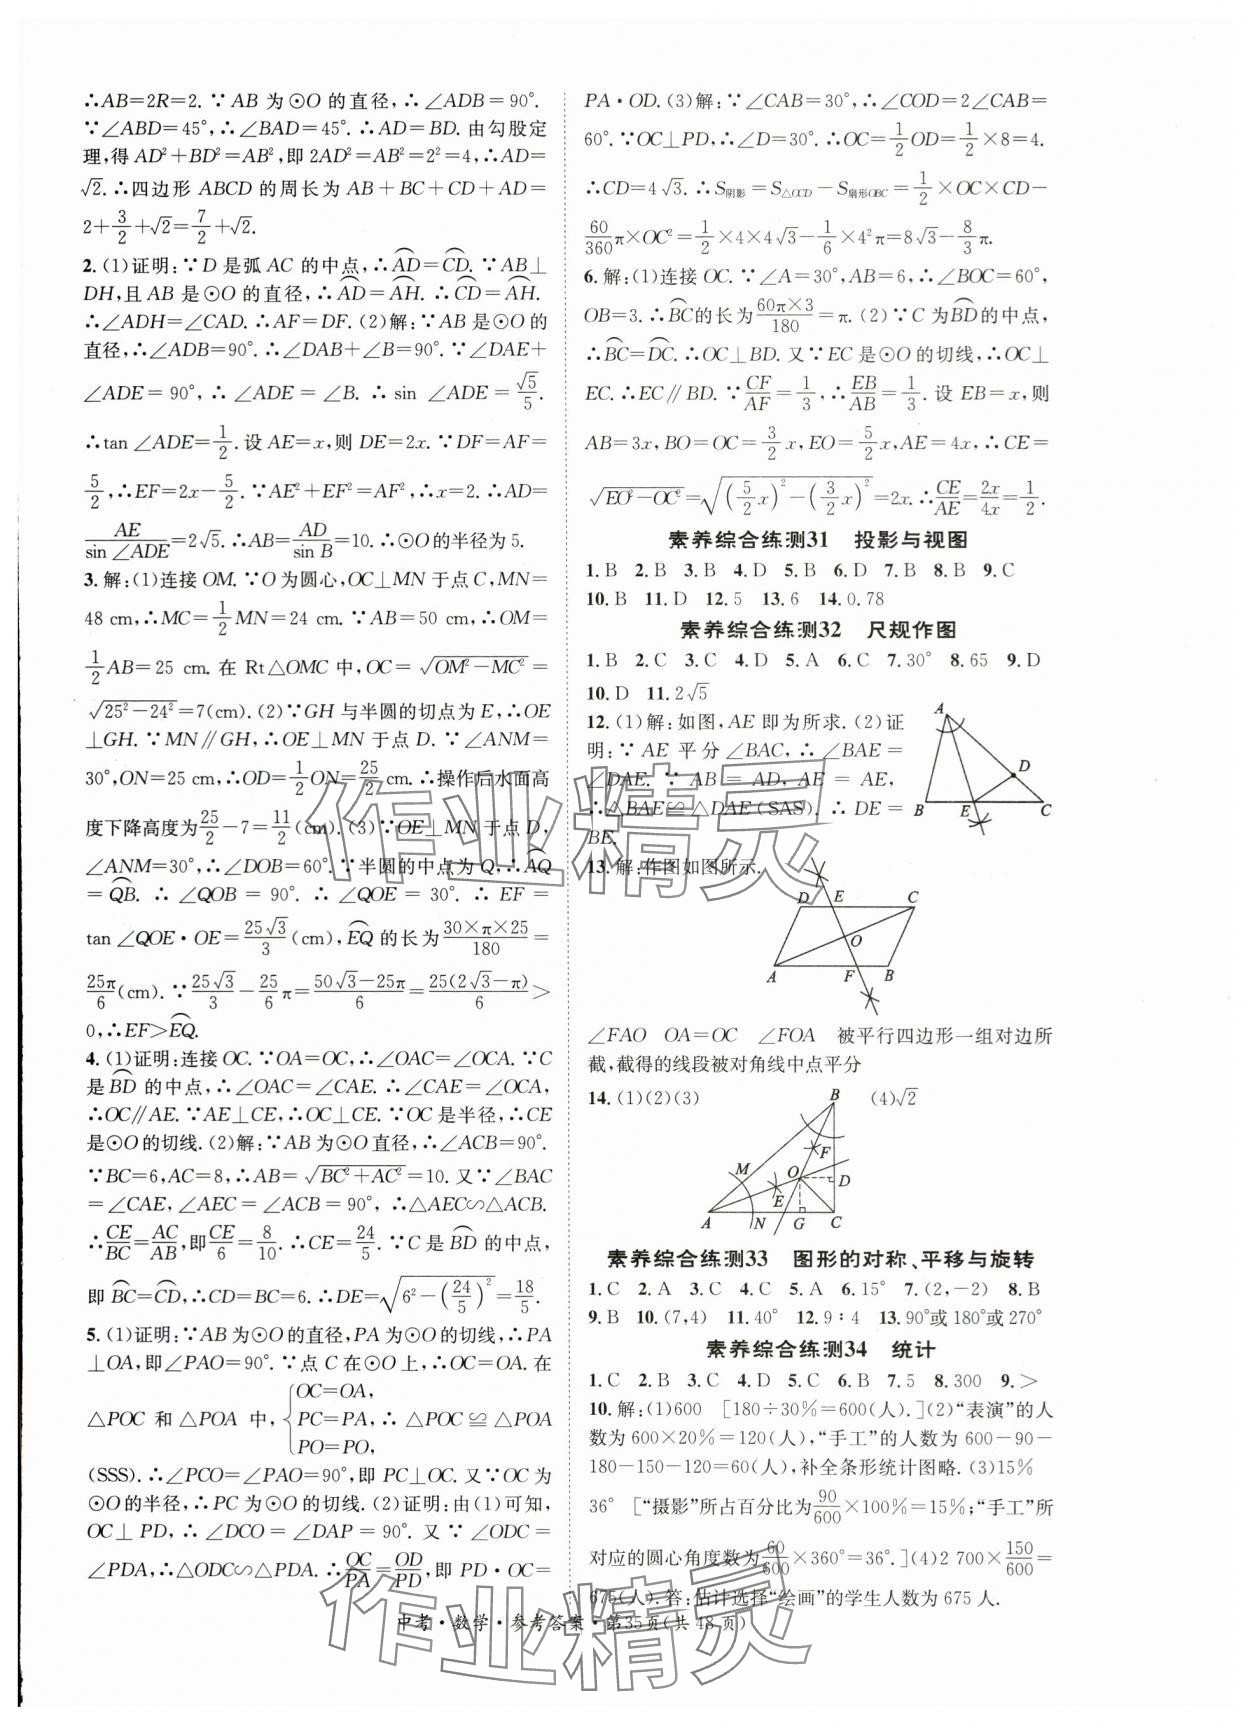 ∴AB=2R=2. ∵AB 为⊙O 的直径,∴∠ADB=90°.
∵∠ABD=45°,∴∠BAD=45°.∴AD=BD.由勾股定
理,得 AD²+BD²=AB²,即 2AD²=AB²=2²=4,∴AD=
√2.∴四边形 ABCD 的周长为 AB+BC+CD+AD=
2+3/2+√2=7/2+√2.
2.(1)证明:∵D 是弧 AC 的中点,∴⌒AD=⌒CD.∵AB⊥
DH,且 AB 是⊙O 的直径,∴⌒AD=⌒AH.∴⌒CD=⌒AH.
∴∠ADH=∠CAD.∴AF=DF.(2)解:∵AB 是⊙O 的
直径,∴∠ADB=90°.∴∠DAB+∠B=90°.∵∠DAE+
∠ADE=90°,∴∠ADE=∠B.∴sin ∠ADE=√5/5.
∴tan ∠ADE=1/2.设 AE=x,则 DE=2x.∵DF=AF=
5/2,∴EF=2x-5/2.∵AE²+EF²=AF²,∴x=2.∴AD=
AE/sin∠ADE=2√5.∴AB=AD/sin B=10.∴⊙O 的半径为 5.
3.解:(1)连接 OM.∵O 为圆心,OC⊥MN 于点 C,MN=
48 cm,∴MC=1/2MN=24 cm.∵AB=50 cm,∴OM=
1/2AB=25 cm.在 Rt△OMC 中,OC=√(OM²-MC²)=
√(25²-24²)=7(cm).(2)∵GH 与半圆的切点为 E,∴OE
⊥GH.∵MN∥GH,∴OE⊥MN 于点 D.∵∠ANM=
30°,ON=25 cm,∴OD=1/2ON=25/2 cm.∴操作后水面高
度下降高度为25/2-7=11/2(cm).(3)∵OE⊥MN 于点 D,
∠ANM=30°,∴∠DOB=60°.∵半圆的中点为 Q,∴⌒AQ
=⌒QB.∴∠QOB=90°.∴∠QOE=30°.∴EF=
tan ∠QOE·OE=25√3/3(cm),⌒EQ的长为(30×π×25)/180=
25π/6(cm).∵25√3/3-25/6π=(50√3-25π)/6=25(2√3-π)/6>
0,∴EF>⌒EQ.
4.(1)证明:连接 OC.∵OA=OC,∴∠OAC=∠OCA.∵C
是⌒BD 的中点,∴∠OAC=∠CAE.∴∠CAE=∠OCA,
∴OC∥AE.∵AE⊥CE,∴OC⊥CE.∵OC 是半径,∴CE
是⊙O 的切线.(2)解:∵AB 为⊙O 直径,∴∠ACB=90°.
∵BC=6,AC=8,∴AB=√(BC²+AC²)=10.又∵∠BAC
=∠CAE,∠AEC=∠ACB=90°,∴△AEC∽△ACB.
∴CE/BC=AC/AB,即CE/6=8/10.∴CE=24/5.∵C 是⌒BD 的中点,
即⌒BC=⌒CD,∴CD=BC=6.∴DE=√(6²-(24/5)²)=18/5.
5.(1)证明:∵AB 为⊙O 的直径,PA 为⊙O 的切线,∴PA
⊥OA,即∠PAO=90°.∵点 C 在⊙O 上,∴OC=OA.在
△POC 和 △POA 中,{OC=OA, PC=PA, PO=PO, ∴△POC≌△POA
(SSS).∴∠PCO=∠PAO=90°,即 PC⊥OC.又∵OC 为
⊙O 的半径,∴PC 为⊙O 的切线.(2)证明:由(1)可知,
OC⊥PD,∴∠DCO=∠DAP=90°.又∵∠ODC=
∠PDA,∴△ODC∽△PDA.∴OC/PA=OD/PD,即 PD·OC=
PA·OD.(3)解:∵∠CAB=30°,∴∠COD=2∠CAB=
60°.∵OC⊥PD,∴∠D=30°.∴OC=1/2OD=1/2×8=4.
∴CD=4√3.∴S阴影=S△OCD-S扇形OBC=1/2×OC×CD-
60/360π×OC²=1/2×4×4√3-1/6×4²π=8√3-8/3π.
6.解:(1)连接 OC.∵∠A=30°,AB=6,∴∠BOC=60°,
OB=3.∴⌒BC的长为(60π×3)/180=π.(2)∵C 为⌒BD的中点,
∴⌒BC=⌒DC.∴OC⊥BD.又∵EC 是⊙O 的切线,∴OC⊥
EC.∴EC∥BD.∵CF/AF=1/3,∴EB/AB=1/3.设 EB=x,则
AB=3x,BO=OC=3/2x,EO=5/2x,AE=4x,∴CE=
√(EO²-OC²)=√((5/2x)²-(3/2x)²)=2x.∴CE/AE=2x/4x=1/2.
素养综合练测31 投影与视图
1.B 2.B 3.B 4.D 5.B 6.D 7.B 8.B 9.C
10.B 11.D 12.5 13.6 14.0.78
素养综合练测32 尺规作图
1.B 2.C 3.C 4.D 5.A 6.C 7.30° 8.65 9.D
10.D 11.2√5
12.(1)解:如图,AE 即为所求.(2)证
明:∵AE 平分∠BAC,∴∠BAE=
∠DAE.∵AB=AD,AE=AE,
∴△BAE≌△DAE(SAS).∴DE=
BE.
A
D
B E C
13.解:作图如图所示.
D E C
O
A F B
∠FAO OA=OC ∠FOA 被平行四边形一组对边所
截,截得的线段被对角线中点平分
14.(1)(2)(3)
(4)√2
B
F
M O
D
E
A N G C
素养综合练测33 图形的对称、平移与旋转
1.C 2.A 3.C 4.C 5.A 6.15° 7.(2,-2) 8.B
9.B 10.(7,4) 11.40° 12.9∶4 13.90°或180°或270°
素养综合练测34 统计
1.C 2.B 3.C 4.D 5.C 6.B 7.5 8.300 9.>
10.解:(1)600 [180÷30%=600(人).](2)“表演”的人
数为 600×20%=120(人),“手工”的人数为 600-90-
180-150-120=60(人),补全条形统计图略.(3)15%
36° [“摄影”所占百分比为90/600×100%=15%;“手工”所
对应的圆心角度数为60/600×360°=36°.](4)2 700×150/600=
675(人).答:估计选择“绘画”的学生人数为 675 人.
中考·数学·参考答案·第35页(共48页)
作业精灵
作业精灵